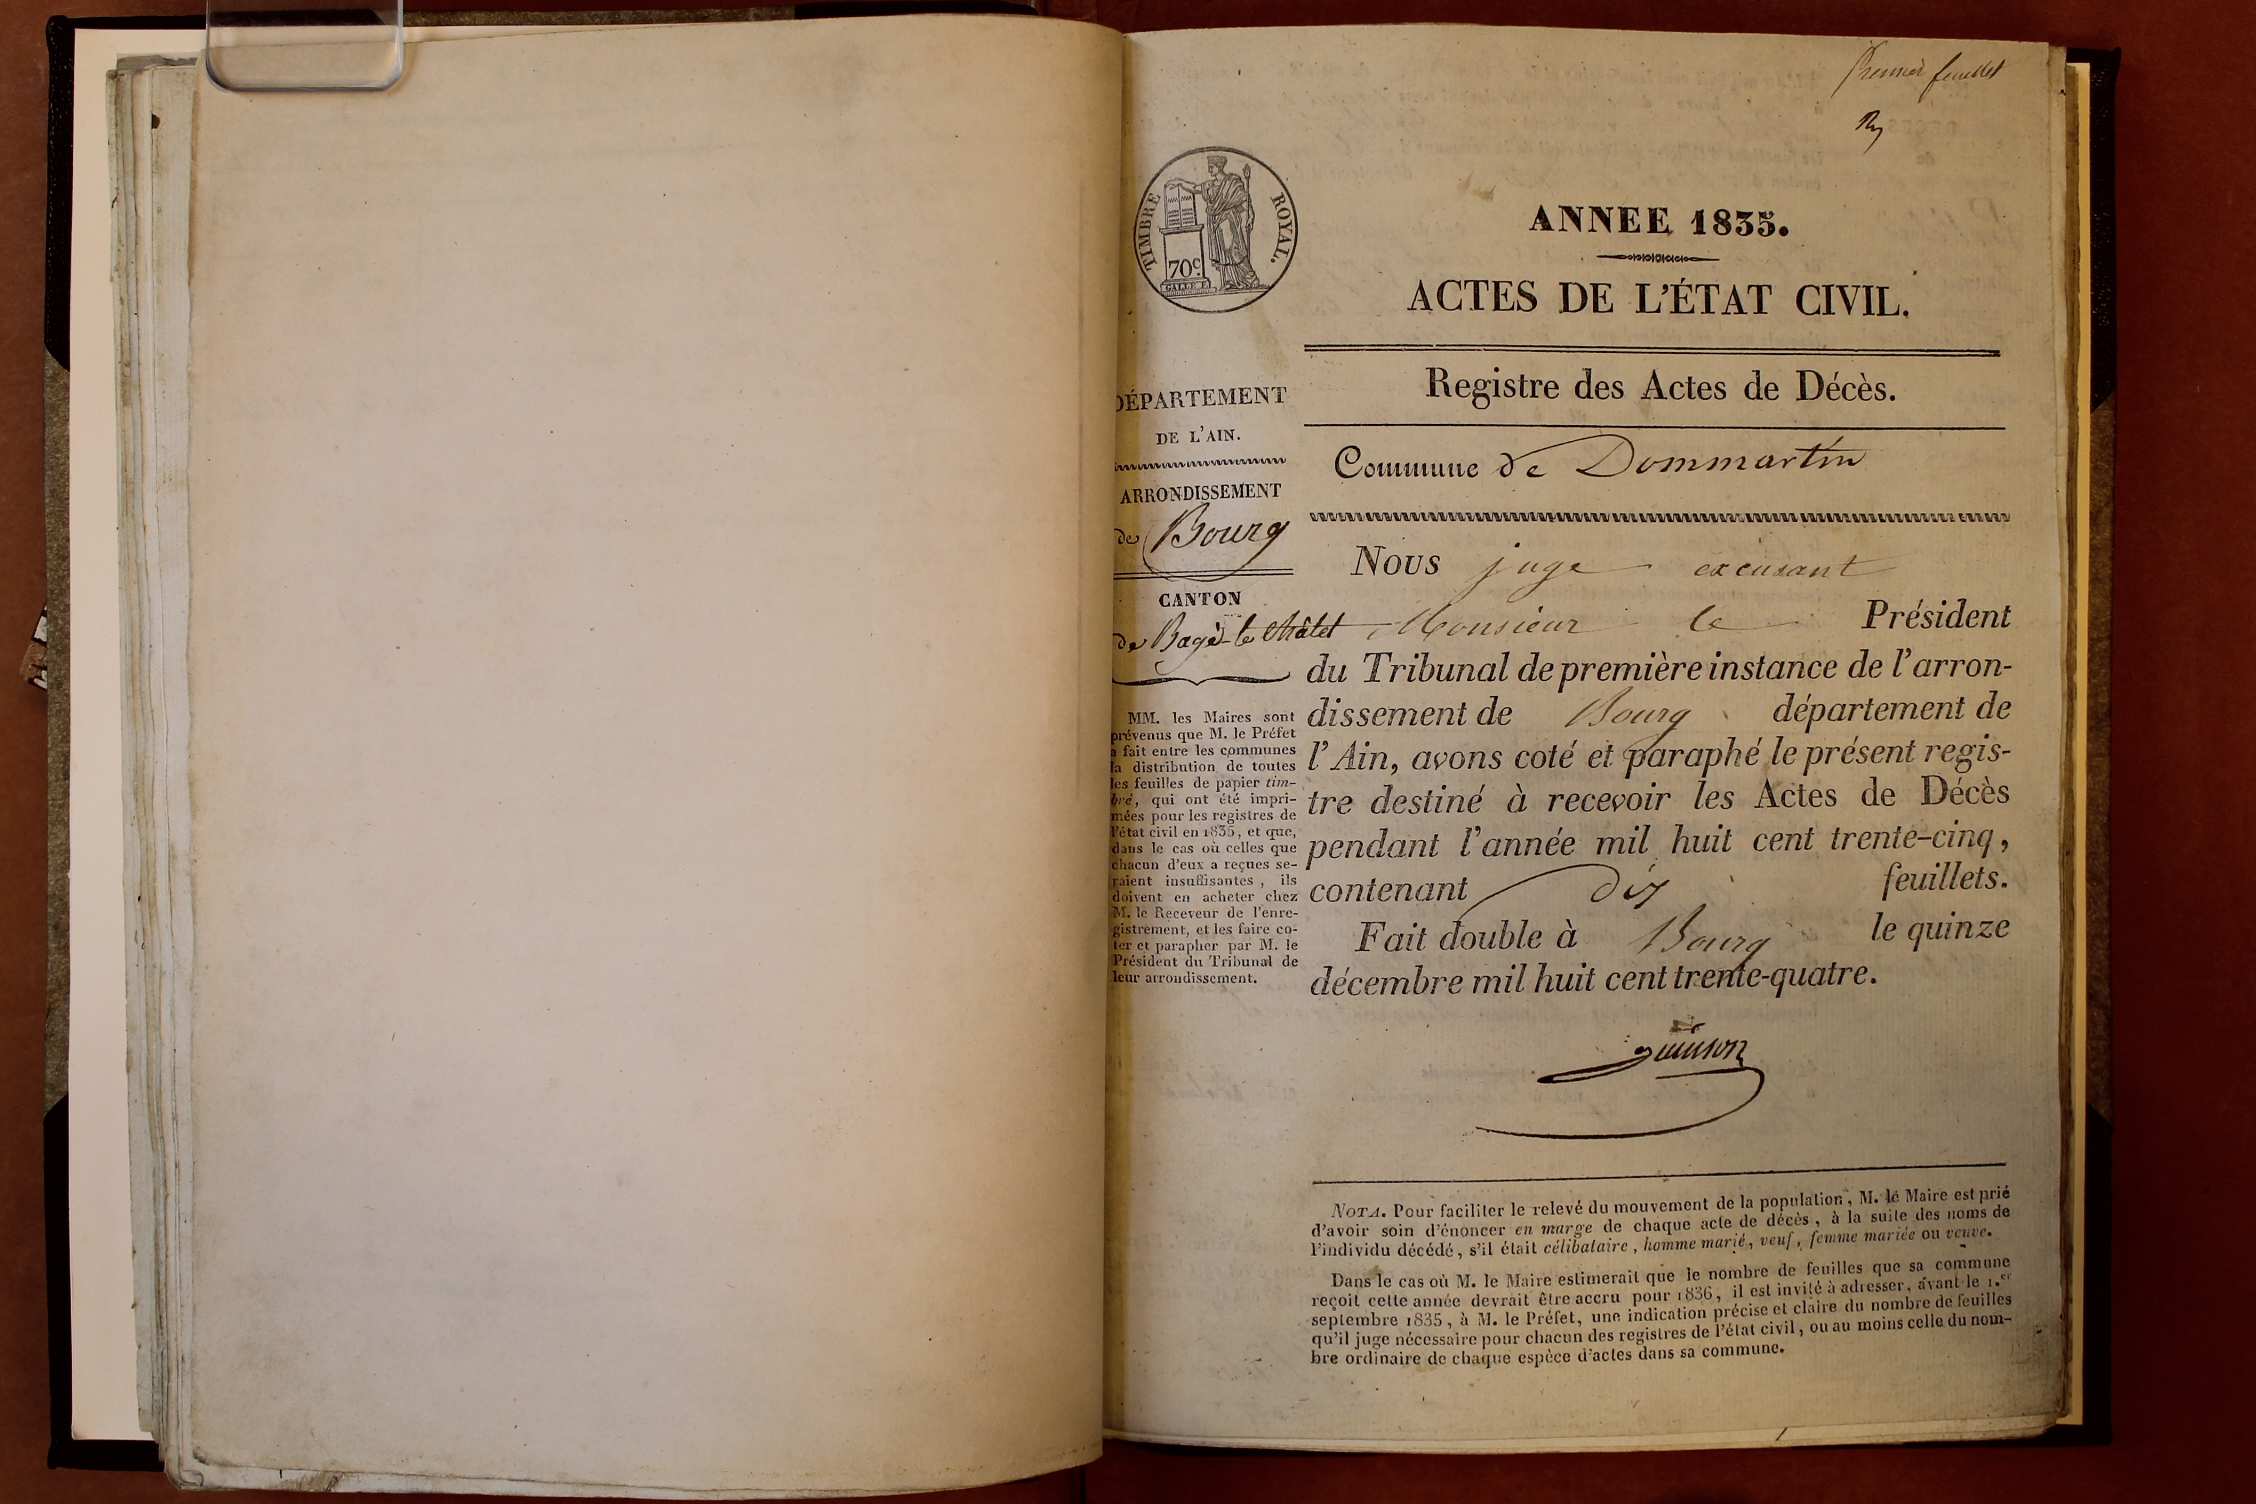 Premier feuillet
TIMBRE ROYAL.
70c.
ANNEE 1835.
ACTES DE L'ÉTAT CIVIL.
Registre des Actes de Décès.
Commune de Dommartin
DÉPARTEMENT
DE L'AIN.
ARRONDISSEMENT
de Bourg
CANTON
de Bagé-le Châtel
MM. les Maires sont
prévenus que M. le Préfet
a fait entre les communes
la distribution de toutes
les feuilles de papier tim-
bré, qui ont été impri-
mées pour les registres de
l'état civil en 1835, et que,
dans le cas où celles que
chacun d'eux a reçues se-
raient insuffisantes, ils
doivent en acheter chez
M. le Receveur de l'enre-
gistrement, et les faire co-
ter et parapher par M. le
Président du Tribunal de
leur arrondissement.
Nous juge excusant
Monsieur le Président
du Tribunal de première instance de l'arron-
dissement de Bourg département de
l'Ain, avons coté et paraphé le présent regis-
tre destiné à recevoir les Actes de Décès
pendant l'année mil huit cent trente-cinq,
contenant dix feuillets.
Fait double à Bourg le quinze
décembre mil huit cent trente-quatre.
guinson
NOTA. Pour faciliter le relevé du mouvement de la population, M. le Maire est prié
d'avoir soin d'énoncer en marge de chaque acte de décès, à la suite des noms de
l'individu décédé, s'il était célibataire, homme marié, veuf, femme mariée ou veuve.
Dans le cas où M. le Maire estimerait que le nombre de feuilles que sa commune
reçoit cette année devrait être accru pour 1836, il est invité à adresser, avant le 1.er
septembre 1835, à M. le Préfet, une indication précise et claire du nombre de feuilles
qu'il juge nécessaire pour chacun des registres de l'état civil, ou au moins celle du nom-
bre ordinaire de chaque espèce d'actes dans sa commune.